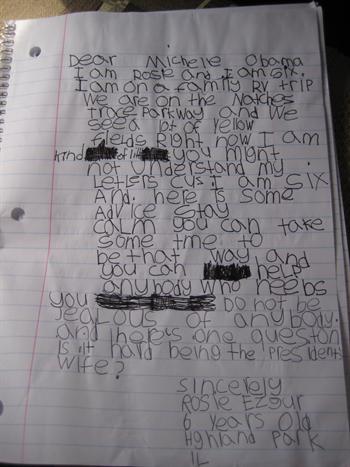 Dear Michelle Obama
I am Rosie and I am six.
I am on a family RV trip
We are on the Natches
Trace Parkway and we
see a lot of yellow
fields right now I am
kind of you might
not understand my
Letters cus I am six
And here is some
Advice stay
CALM you can take
some tme to
be that way and
you can help
anybody who neebs
you Do not be
jealous of anybody.
and here's one queston
Is it hard being the Presidents
wife?
Sincerely
Rosie Ezour
6 years old
Highland Park
IL